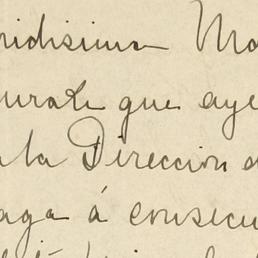 ridisima Ma
urale que aye
la Direccion d
aga á consecu